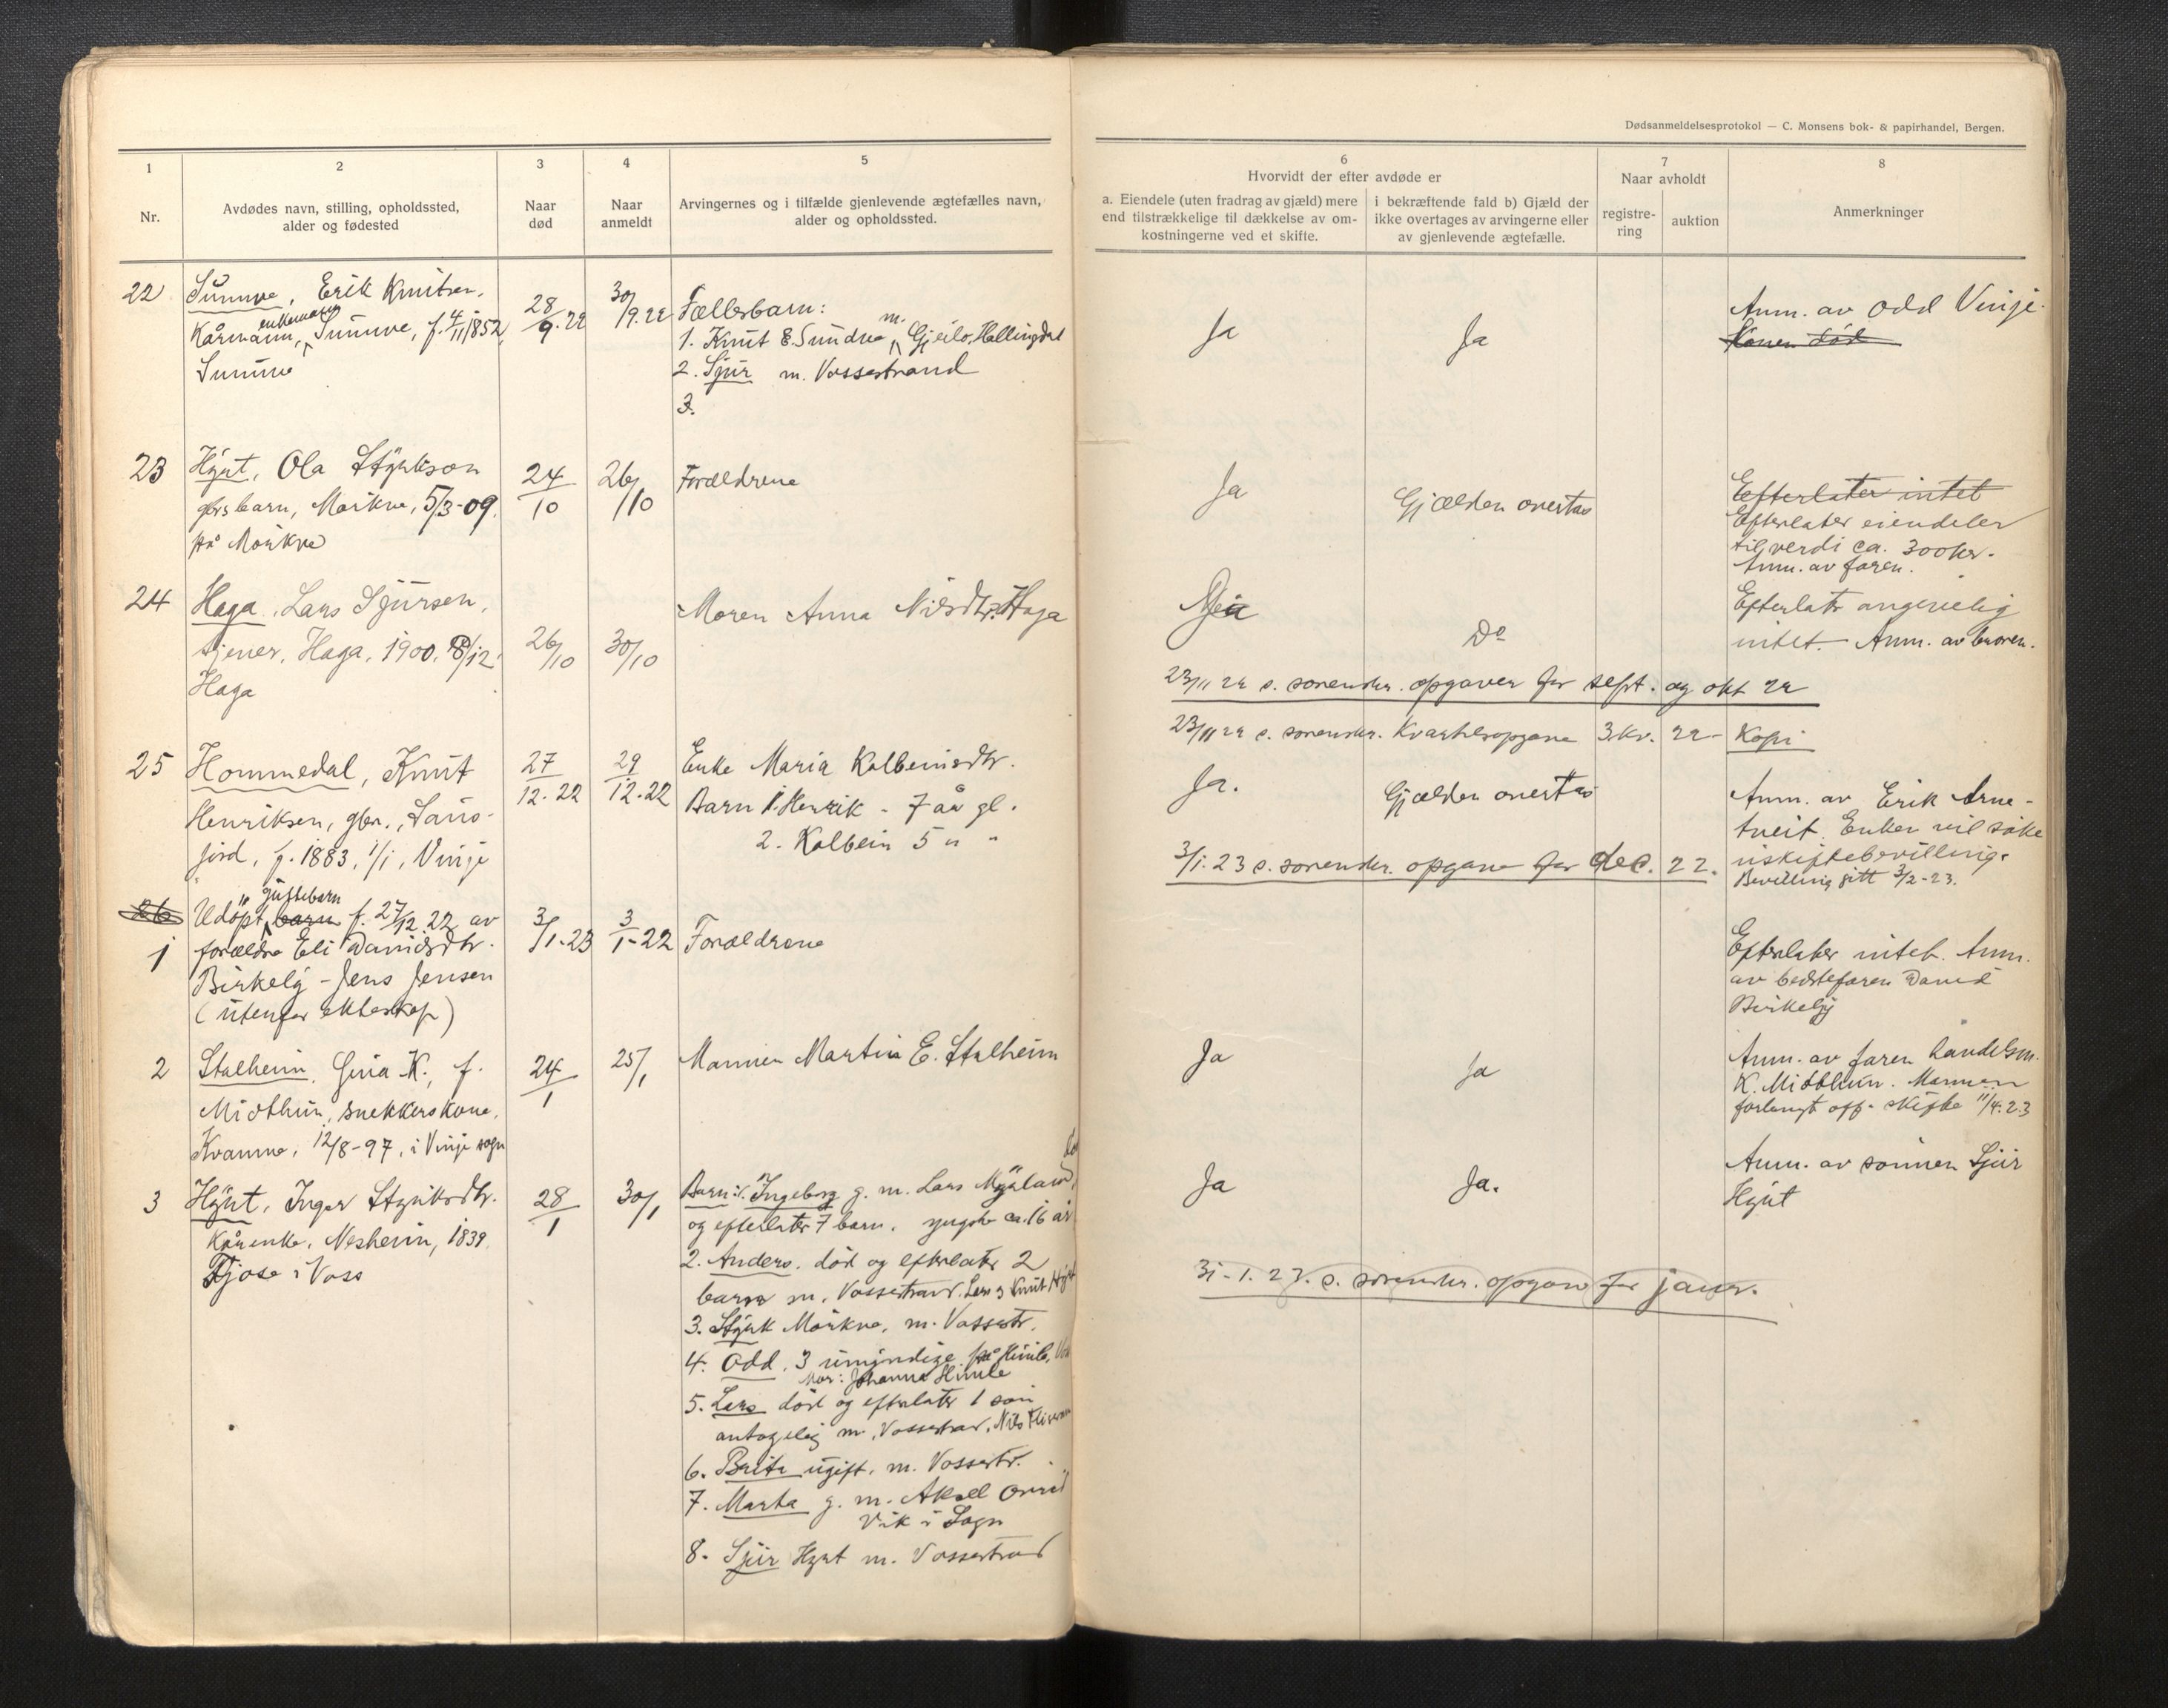 Dødsanmeldelsesprotokol — C. Monsens bok- & papirhandel, Bergen.
1
2
3
4
5
6
7
8
Nr.
Avdødes navn, stilling, opholdssted,
alder og fødested
Naar
død
Naar
anmeldt
Arvingernes og i tilfælde gjenlevende ægtefælles navn,
alder og opholdssted.
Hvorvidt der efter avdøde er
a. Eiendele (uten fradrag av gjæld) mere
end tilstrækkelige til dækkelse av om-
kostningerne ved et skifte.
i bekræftende fald b) Gjæld der
ikke overtages av arvingerne eller
av gjenlevende ægtefælle.
Naar avholdt
registre-
ring
auktion
Anmerkninger
22
Sundve, Erik Knutsen,
enkemann
Kårmann, Sundve, f. 4/11 1852,
Sundve
28/9.22
30/9.22
Fællesbarn:
1. Knut E. Sundve m. Gjeilo, Hallingdal
2. Sjur m. Vossestrand
3.
Ja
Ja
Anm. av Odd Vinje.
Konen død
23
Hyrt, Ola Styrkson
gbrs barn, Mørkve, 5/3-09.
på Mørkve
24/10
26/10
Forældrene
Ja
Gjælden overtas
Efterlater intet
Efterlater eiendeler
til verdi ca. 300 kr.
Anm. av faren.
24
Haga, Lars Sjursen,
tjener, Haga, 1900, 8/12
Haga
26/10
30/10
Moren Anna Nilsdtr. Haga
Do
Efterlater angivelig
intet. Anm. av broren.
23/11 22 s. sorenskr. opgaver for sept. og okt 22
23/11 22 s. sorenskr. Kvartalsopgave 3. kv. 22 - Kopi
25
Hommedal, Knut
Henriksen, gbr.,
f. 1883, 1/1, Vinje
27/12.22
29/12.22
Enke Maria Kolbeinsdtr.
Barn 1. Henrik - 7 år gl.
2. Kolbein 5 " "
Ja.
Gjælden overtas
Anm. av Erik Arne-
tveit. Enken vil søke
uskiftebevilling.
Bevilling gitt 3/2-23.
3/1.23 s. sorenskr. opgave for dec. 22.
26
1
guttebarn
Udøpt barn f. 27/12.22 av
forældre Eli Davidsdtr.
Birkelg - Jens Jensen
(utenfor ekteskap)
3/1-23
3/1-22
Forældrene
Efterlater intet. Anm.
av bedstefaren David
Birkelg
2
Stalheim, Gina K., f.
Midthun, snekkerskone,
Kvamme, 12/8-97, i Vinje sogn
24/1
25/1
Mannen Martin E. Stalheim
Ja
Ja
Anm. av faren handelsm.
K. Midthun. Mannen
forlangt off. skifte 11/4.23
3
Hyrt, Inger Styrksdtr.
Kårenke, Nesheim, 1839,
Tjose i Voss
28/1
30/1
Barn: 1. Ingeborg g. m. Lars Mykland, død
og efterlater 7 barn, yngste ca. 16 år
2. Anders, død og efterlater 2
barn m. Vossestrand. Lars og Knut Hyrt
3. Styrk Mørkve, m. Vossestr.
4. Odd, 3 umyndige på Himle, Voss
Mor: Johanna Himle
5. Lars død og efterlater 1 søn
antagelig m. Vossestrand, Nils
6. Brita ugift, m. Vossestr.
7. Marta g. m. Aksel
Vik i Sogn
8. Sjur Hyrt m. Vossestrand
Ja
Ja.
Anm. av sønnen Sjur
Hyrt
31-1.23. s. sorenskr. opgave for januar.